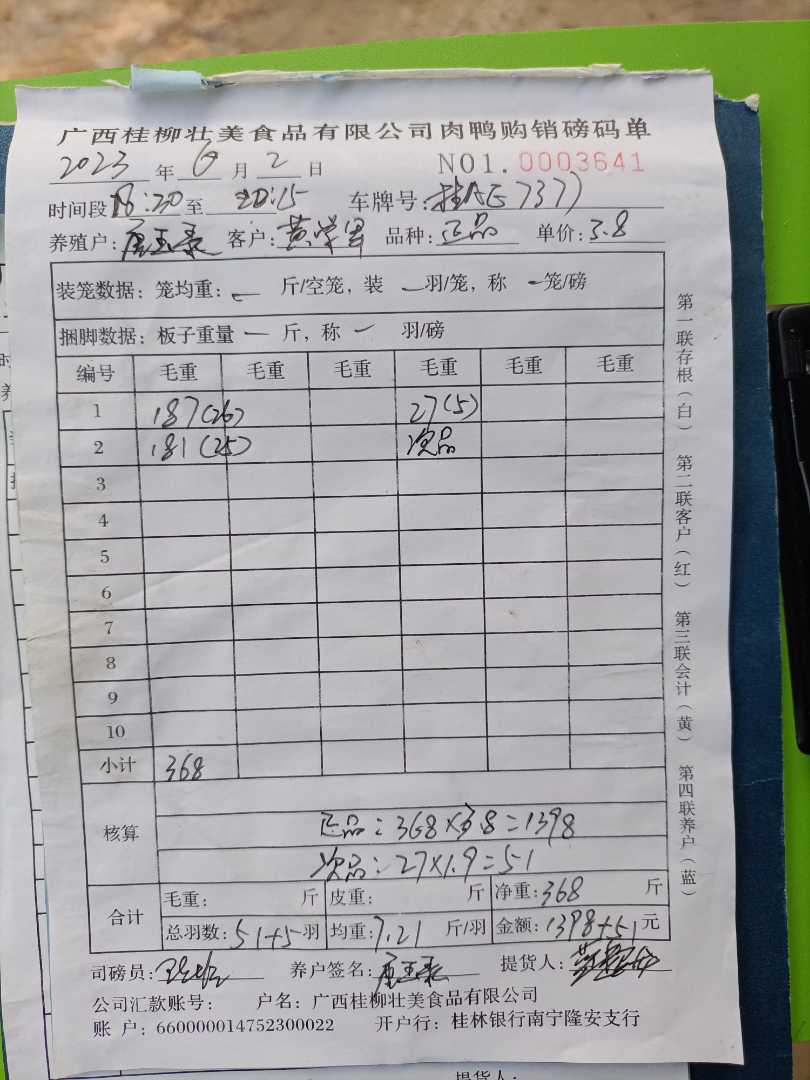 广西桂柳壮美食品有限公司肉鸭购销磅码单
2023 年 6 月 2 日 NO1. 0003641
时间段 18:20 至 20:15 车牌号: 桂AE7377
养殖户: 客户: 黄学男 品种: 正品 单价: 3.8
装笼数据: 笼均重: 斤/空笼, 装 羽/笼, 称 笼/磅
捆脚数据: 板子重量 一 斤, 称 一 羽/磅
编号 毛重 毛重 毛重 毛重 毛重 毛重
1 187(26) 27(5)
2 181(25) 次品
3
4
5
6
7
8
9
10
小计 368
核算
正品: 368×3.8=1398
次品: 27×1.9=51
合计 毛重: 斤 皮重: 斤 净重: 368 斤
总羽数: 51+5 羽 均重: 7.21 斤/羽 金额: 1398+51 元
司磅员: 养户签名: 提货人:
公司汇款账号: 户名: 广西桂柳壮美食品有限公司
账 户: 660000014752300022 开户行: 桂林银行南宁隆安支行
第一联存根(白) 第二联客户(红) 第三联会计(黄) 第四联养户(蓝)
提货人: